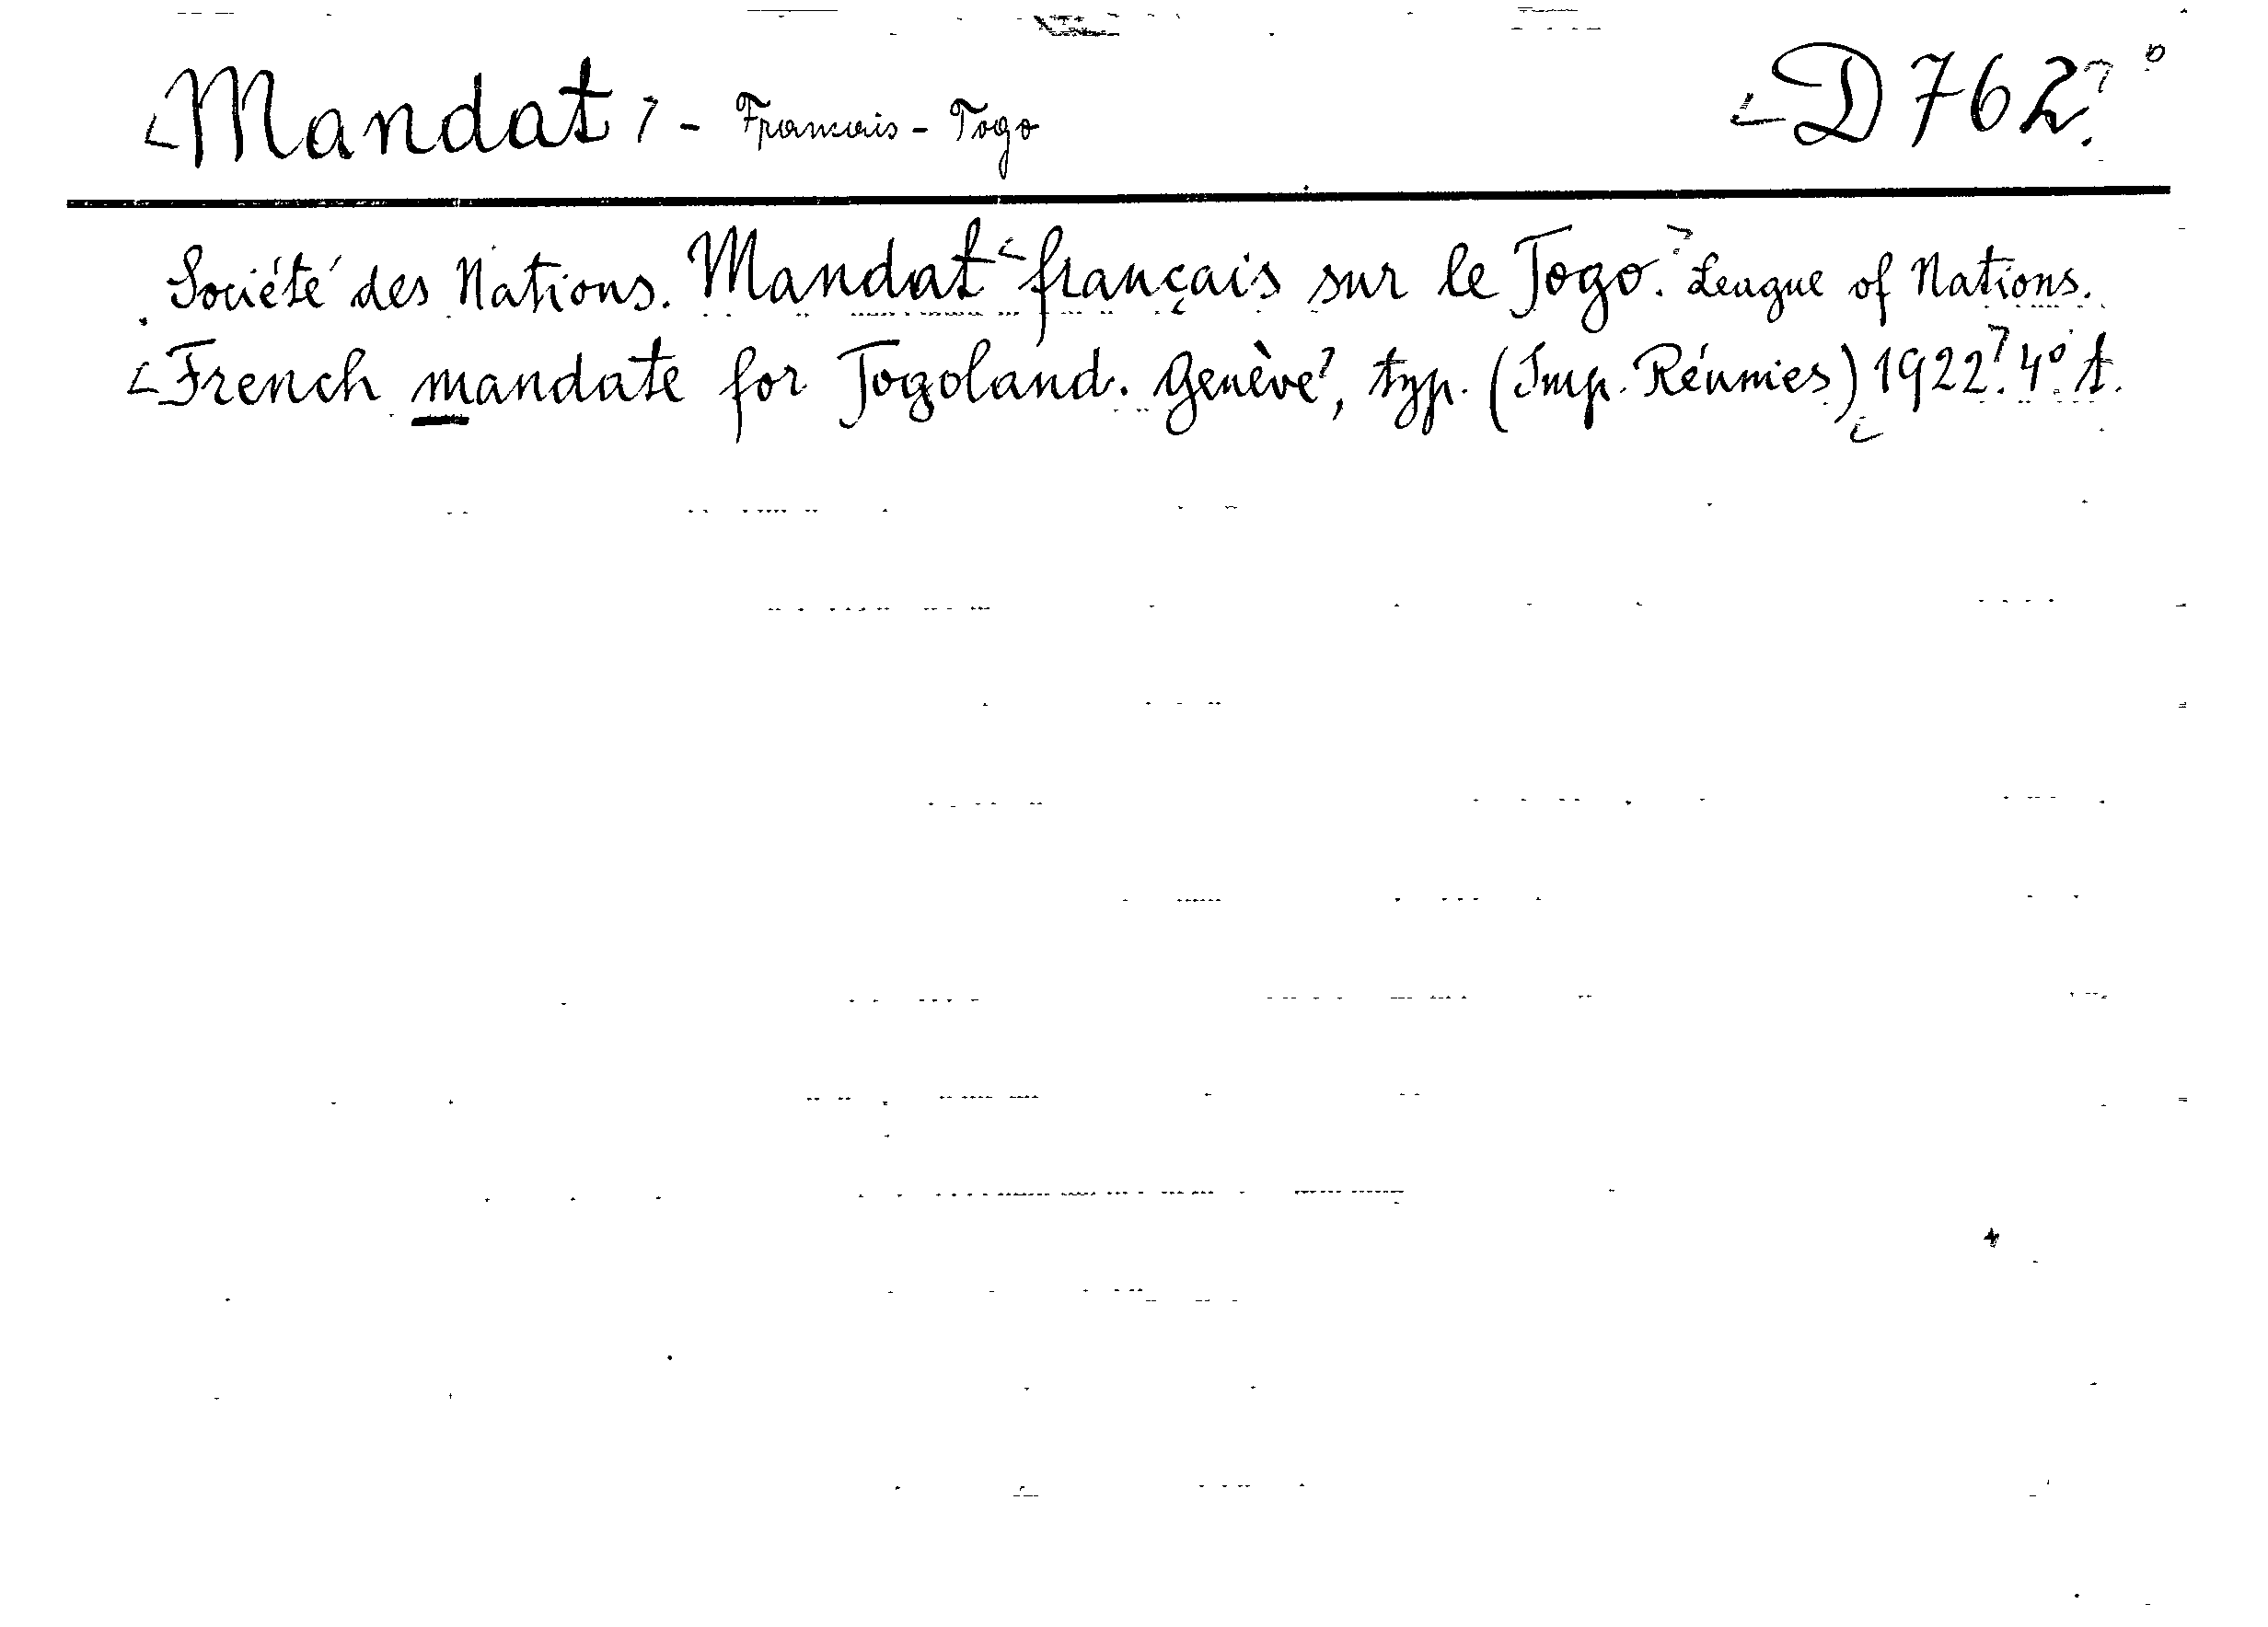 Mandat - Francais - Togo D 762.
Société des Nations. Mandat français sur le Togo. League of Nations.
French mandate for Togoland. Genève, typ. (Imp. Réunies) 1922. 4° t.